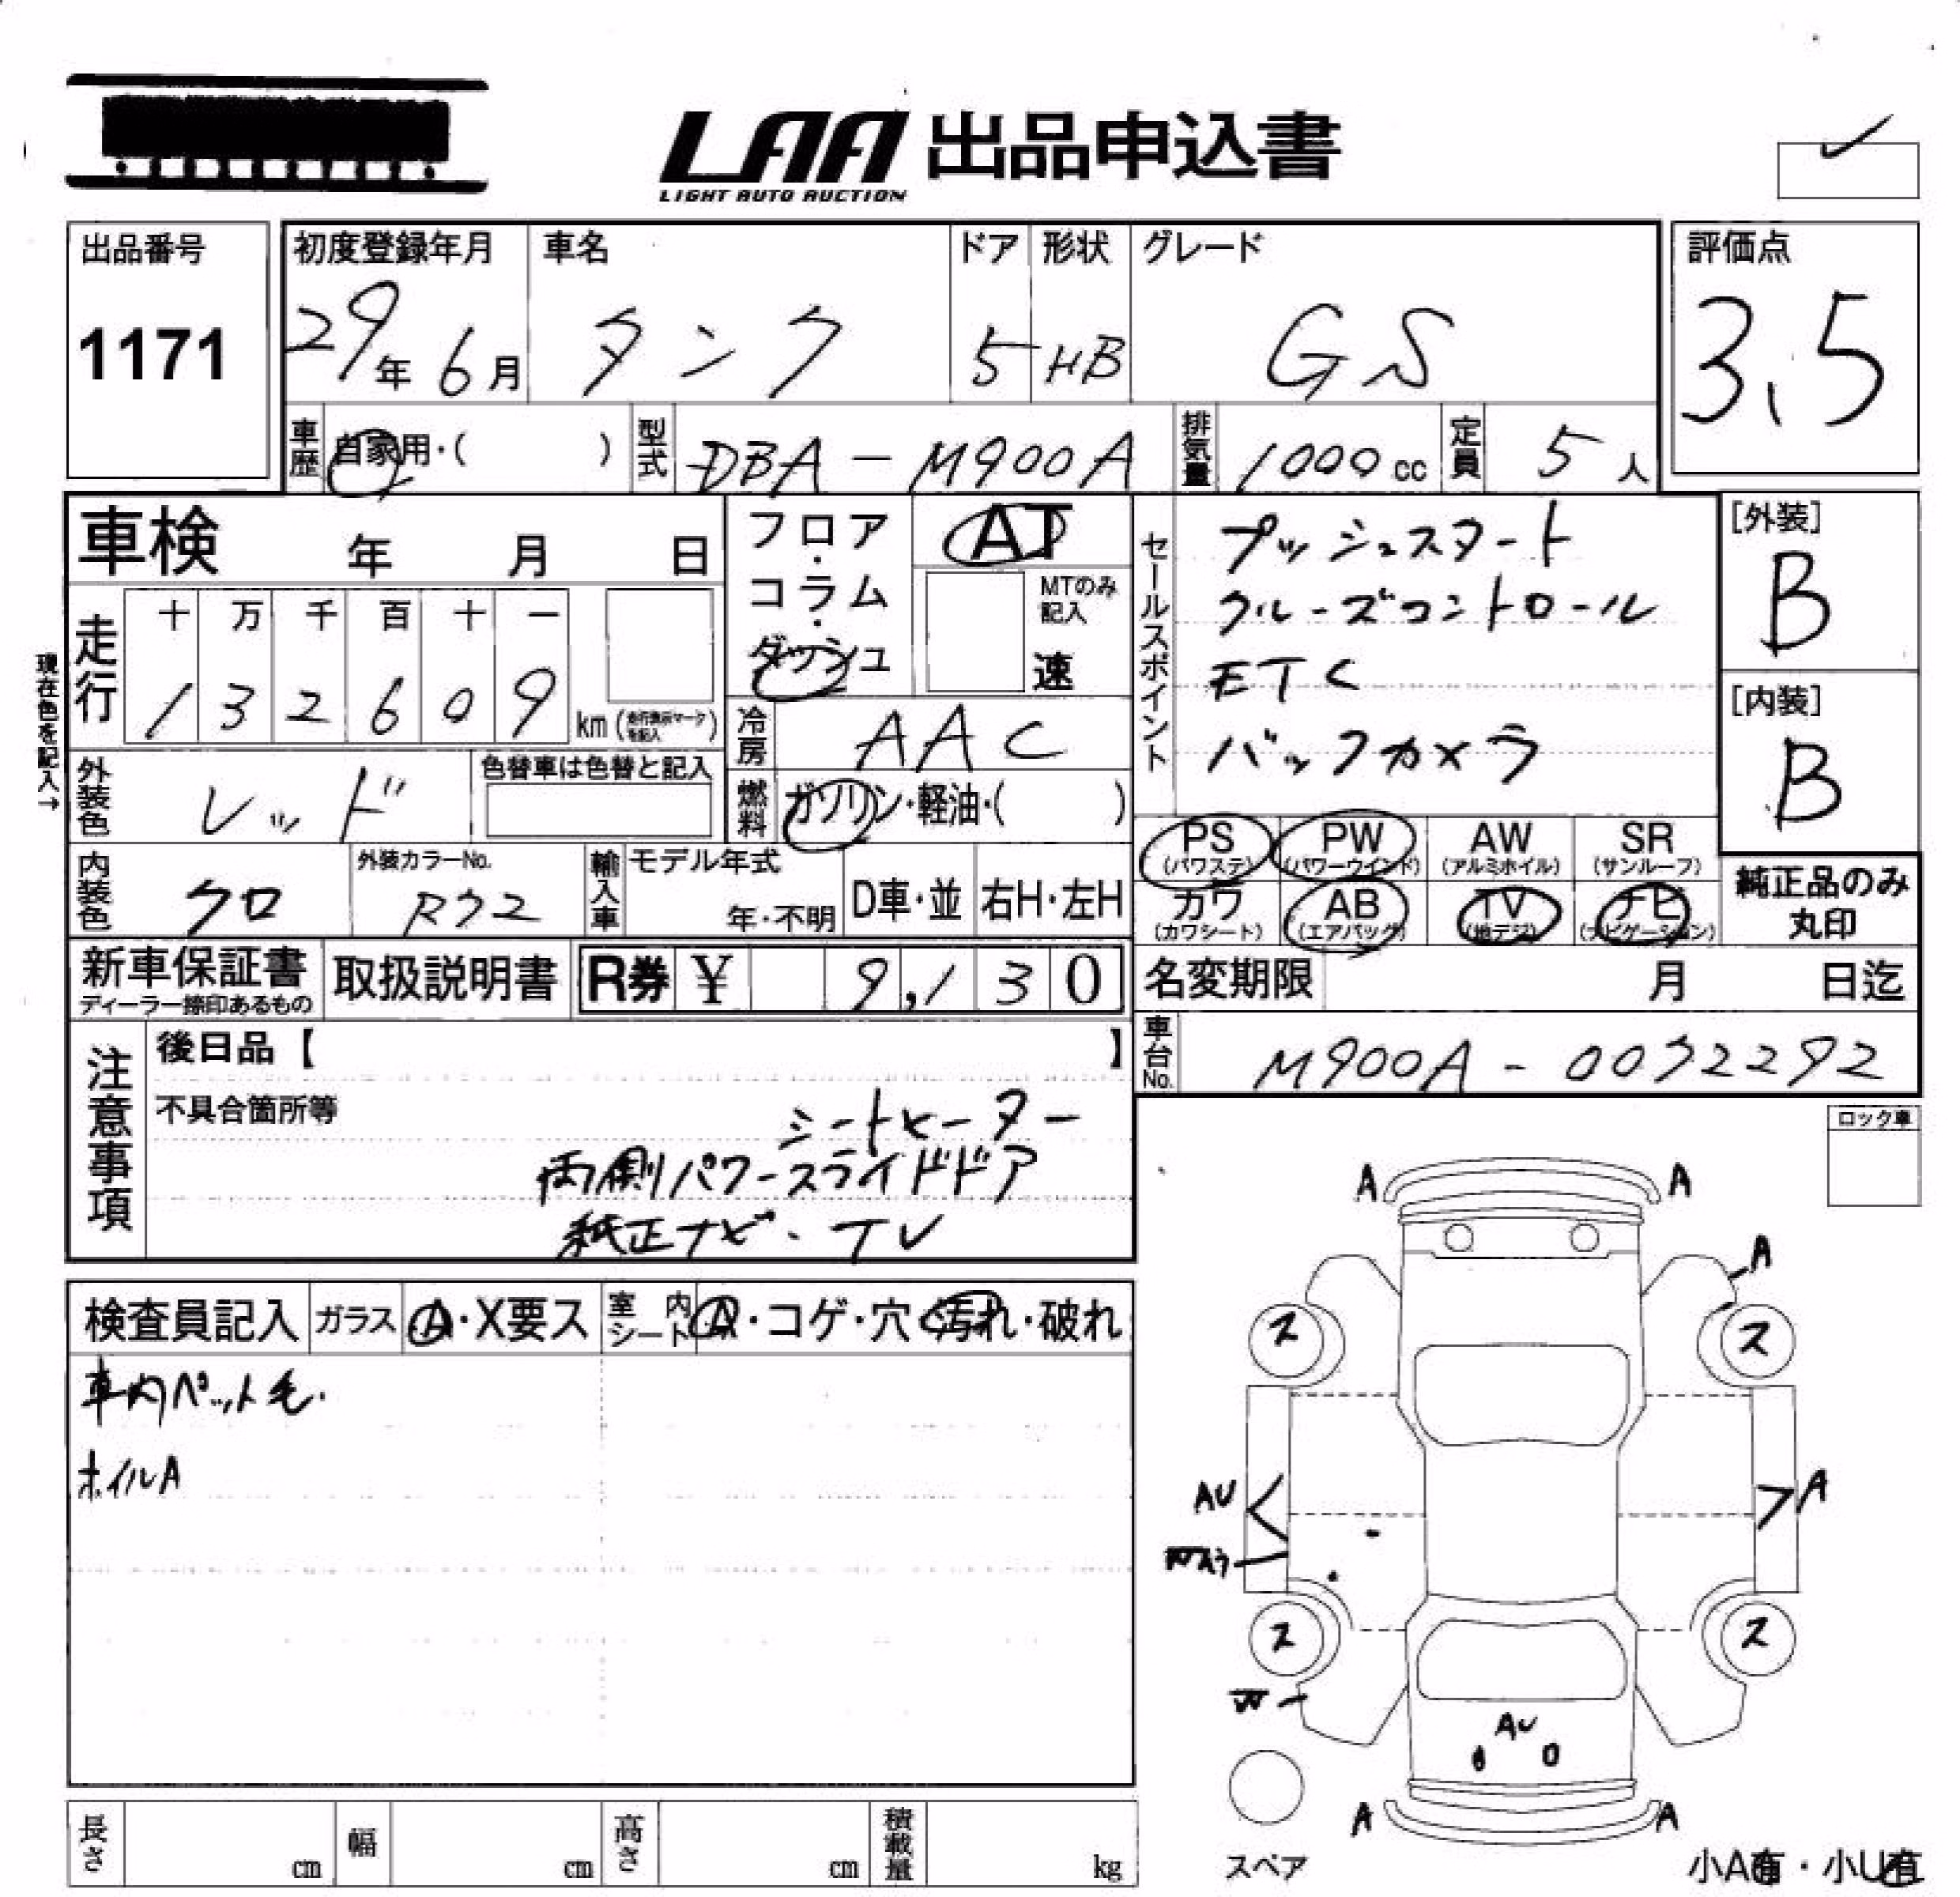 LAA 出品申込書
LIGHT AUTO AUCTION
出品番号
1171
初度登録年月
29年 6月
車名
タンク
ドア
5
形状
HB
グレード
GS
評価点
3.5
車歴 自家用・( )
型式 DBA-M900A
排気量 1000cc
定員 5人
車検 年 月 日
フロア・コラム・ダッシュ
AT
MTのみ記入
速
セールスポイント
プッシュスタート
クルーズコントロール
ETC
バックカメラ
[外装]
B
[内装]
B
現在色を記入→
走行
十 万 千 百 十 一
1 3 2 6 0 9 km (走行表示マークを記入)
冷房 AAC
外装色 レッド
色替車は色替と記入
燃料 ガソリン・軽油・( )
PS (パワステ) PW (パワーウインド) AW (アルミホイル) SR (サンルーフ)
カワ (カワシート) AB (エアバッグ) TV (地デジ) ナビ (ナビゲーション)
純正品のみ丸印
内装色 クロ
外装カラーNo.
輸入車 モデル年式
年・不明
D車・並 右H・左H
新車保証書
ディーラー捺印あるもの
取扱説明書
R券 ¥ 9,130
名変期限 月 日迄
車台No. M900A-0032292
注意事項
後日品【 】
不具合箇所等
シートヒーター
両側パワースライドドア
純正ナビ・TV
ロック車
検査員記入 ガラス A・X要ス 室内シート A・コゲ・穴・汚れ・破れ
車内ペット毛.
ホイルA
A A
A
ス ス
AU A
ス ス
AU
A A
スペア
小A有・小U有
長さ cm 幅 cm 高さ cm 積載量 kg